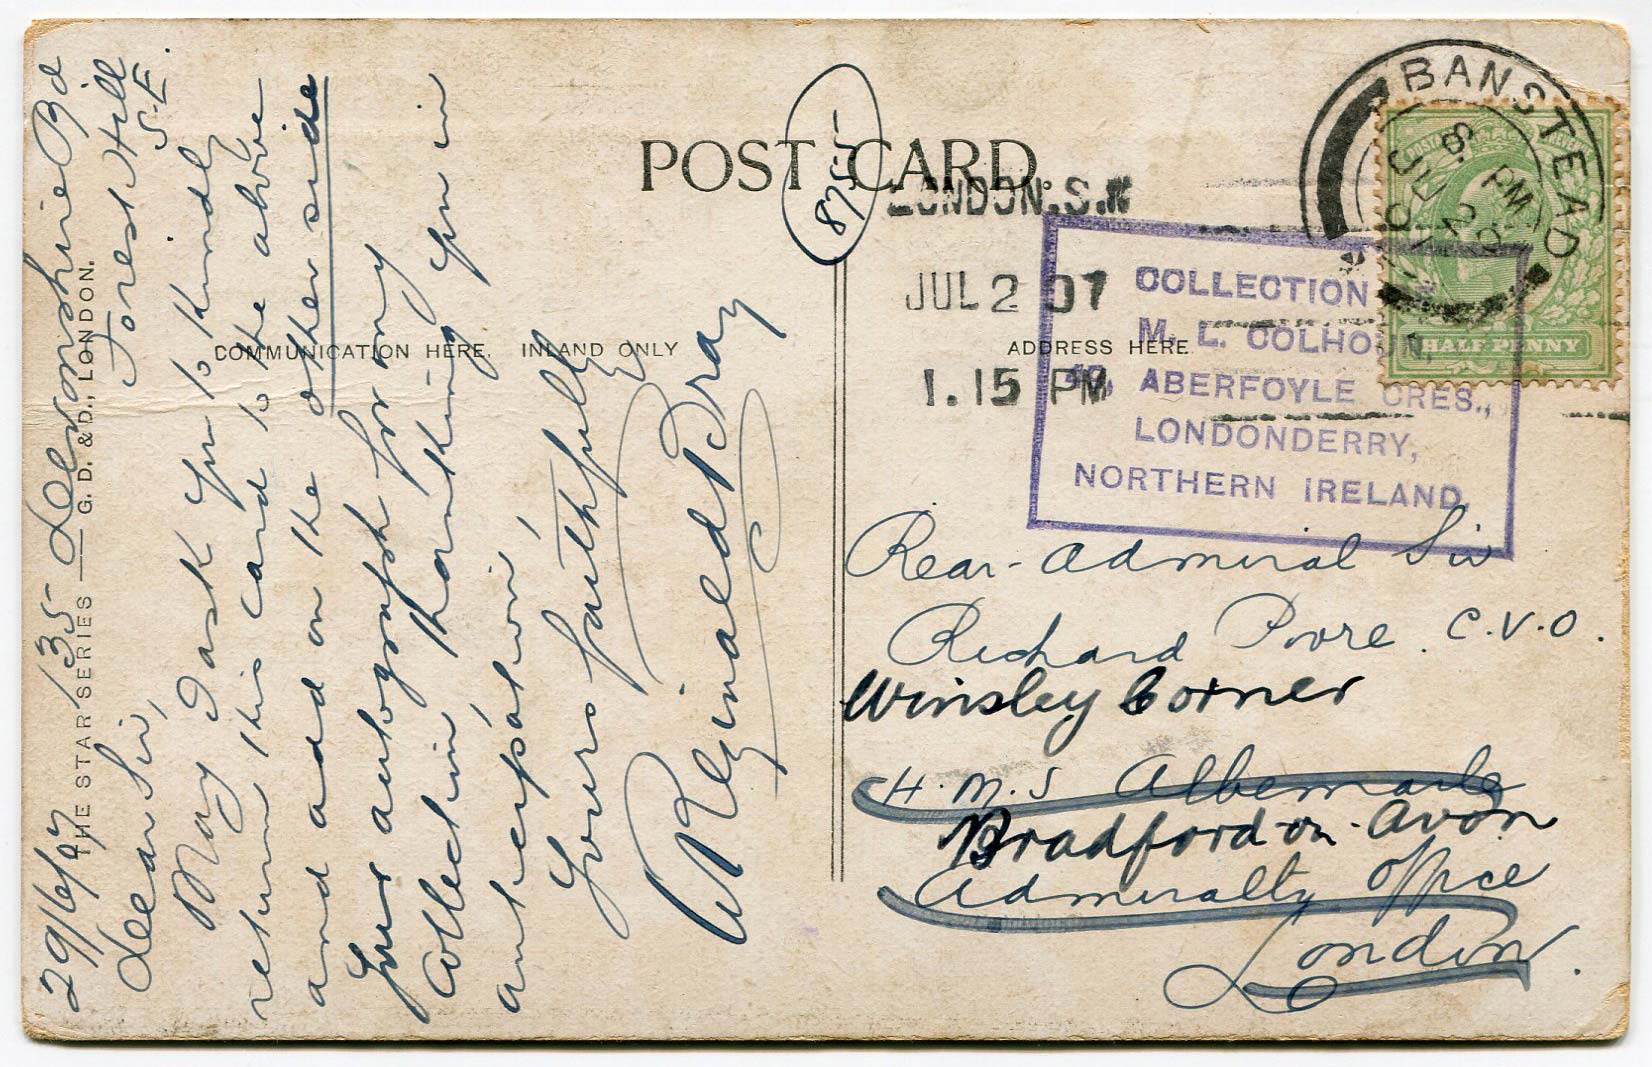 POST CARD
8755
COMMUNICATION HERE. INLAND ONLY
ADDRESS HERE
THE STAR SERIES — G. D. & D., LONDON.
29/6/07
135 Devonshire Rd
Forest Hill
S.E.
Dear Sir,
May I ask you to kindly
return this card to the above
and add on the other side
your autograph for my
collection, thanking you in
anticipation,
Yours faithfully
W Reginald Bray
LONDON. S.W
JUL 2 07
1.15 PM
BANSTEAD
PM
JU 2
HALF PENNY
COLLECTION
M. L. COLHOUN,
ABERFOYLE CRES.,
LONDONDERRY,
NORTHERN IRELAND.
Rear-Admiral Sir
Richard Poore. C.V.O.
Winsley Corner
H.M.S Albemarle
Bradford-on-Avon
Admiralty Office
London.